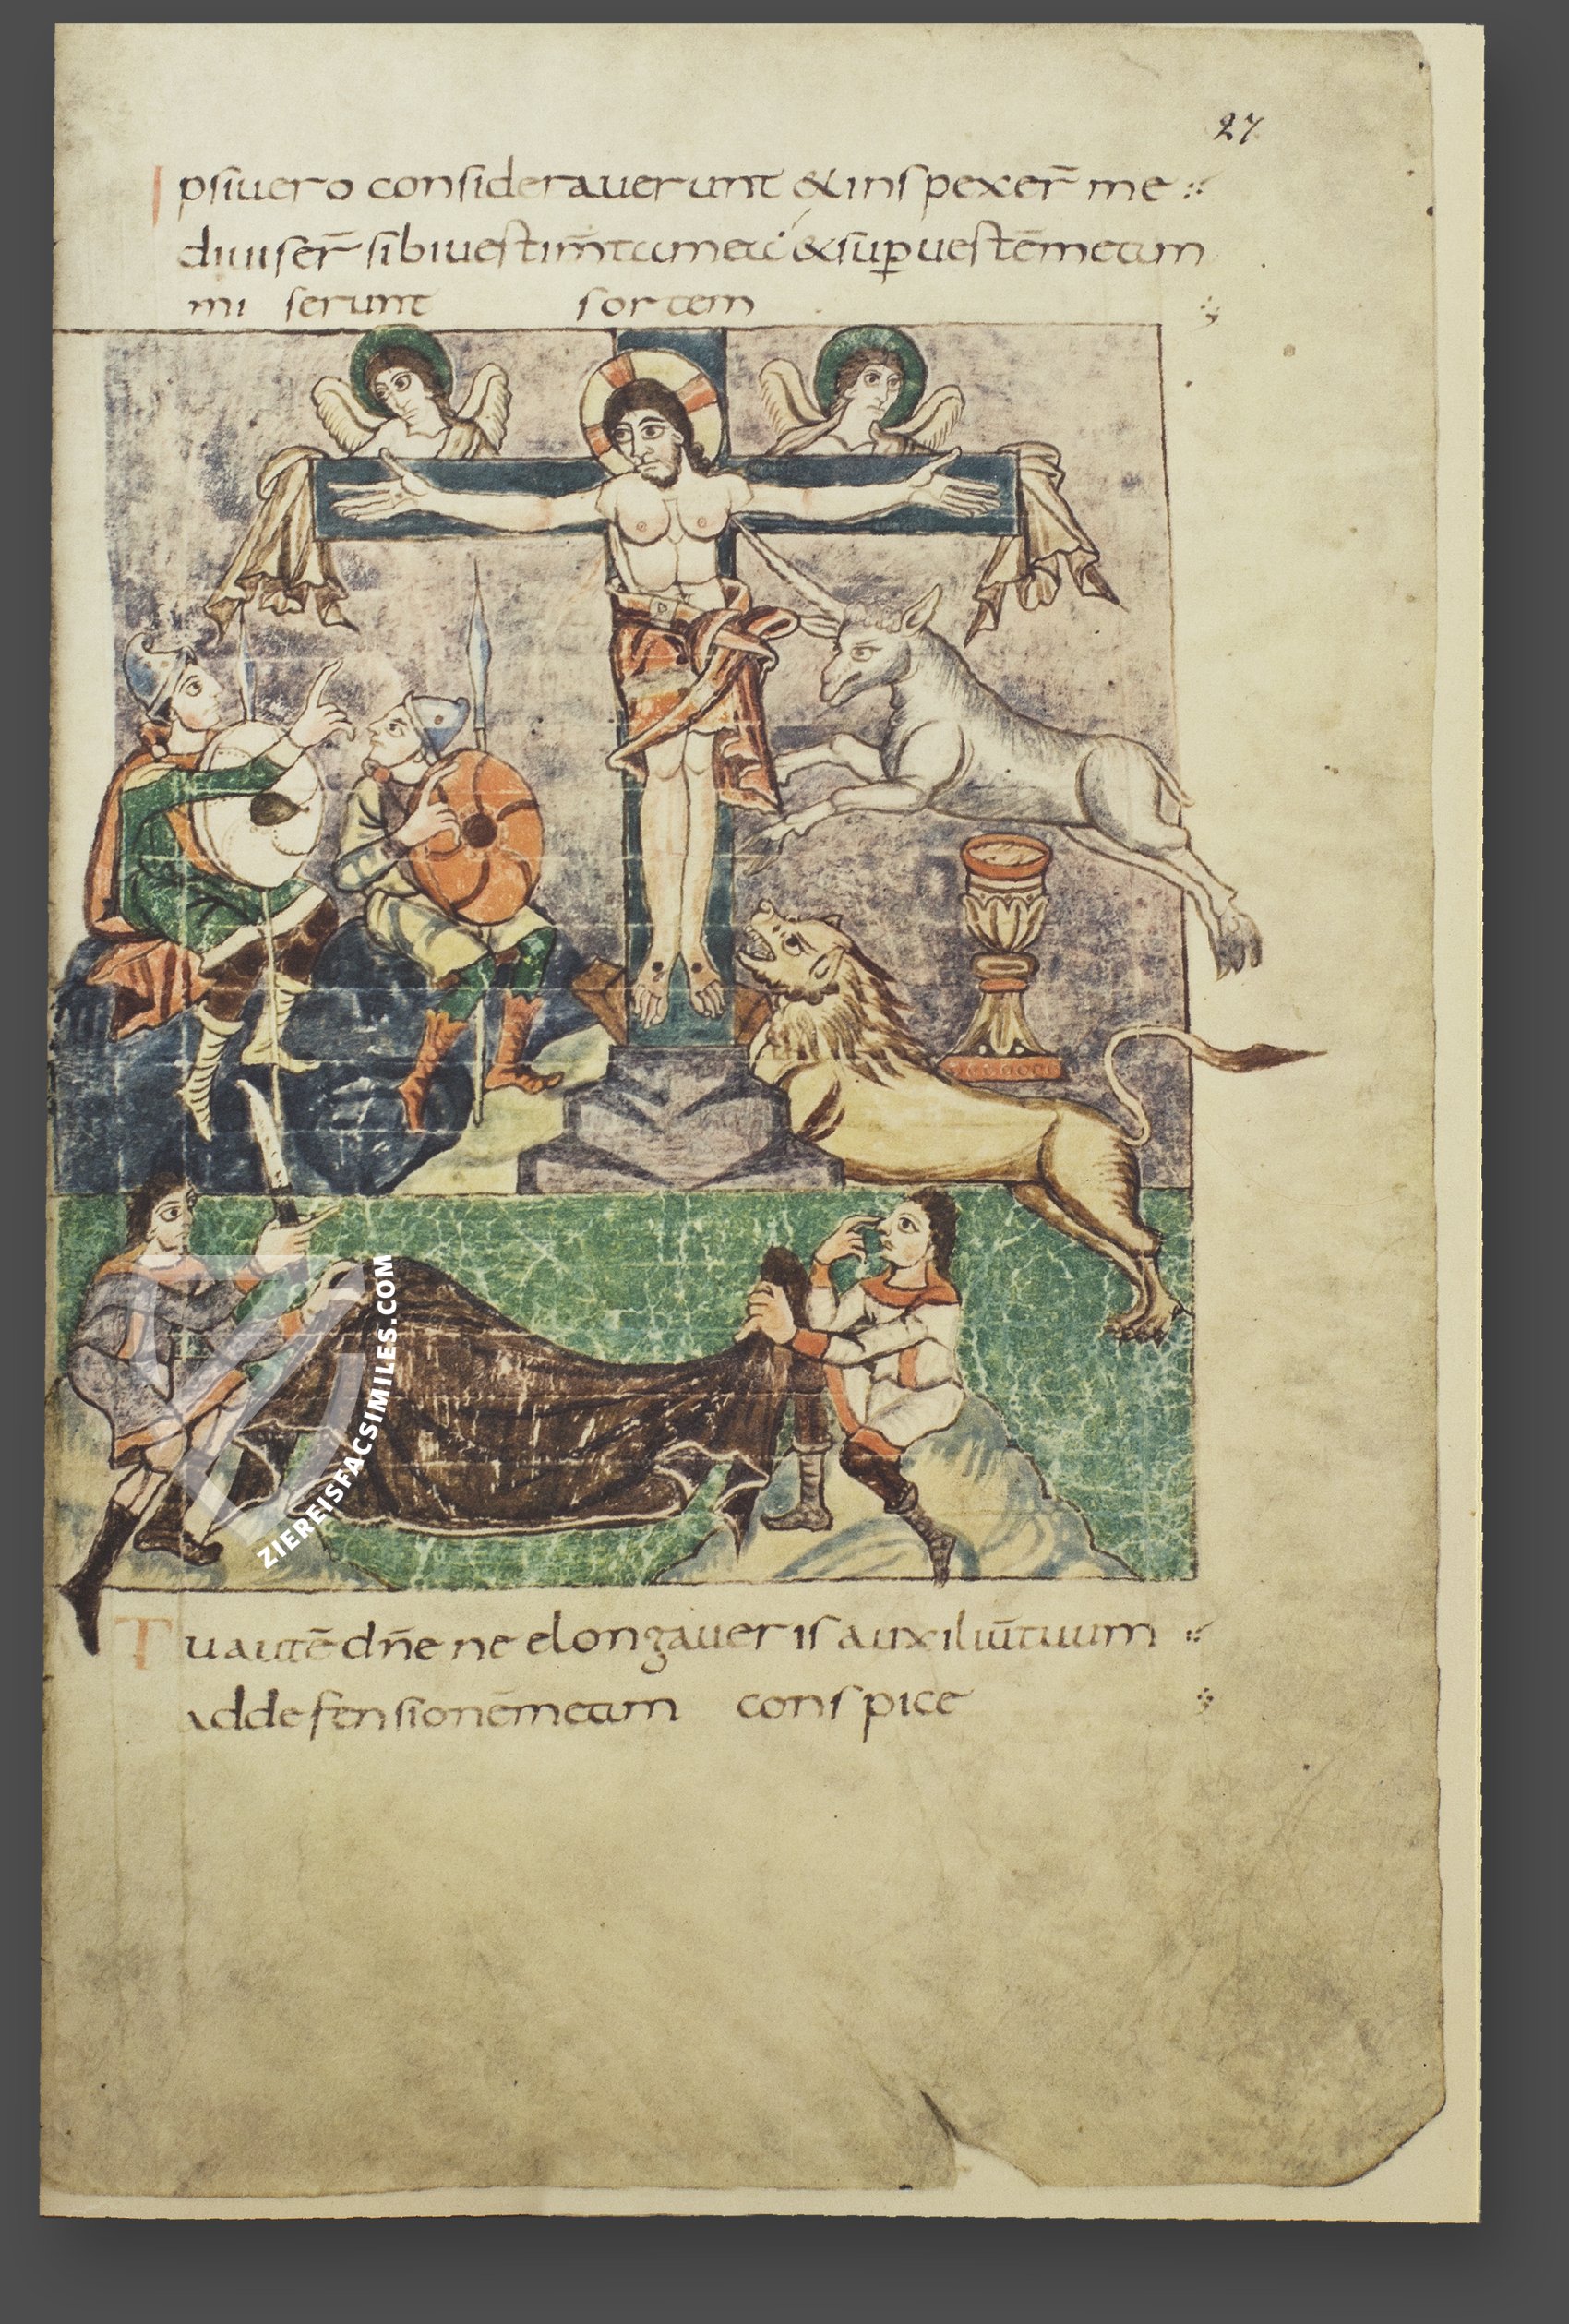 27
Ipsi uero considerauerunt & inspexer̄ me
diuiser̄ sibi uestim̄ta mea & sup uestē meam
miserunt sortem
ZIEREISFACSIMILES.COM
Tu autē dn̄e ne elongaueris auxiliū tuum
ad defensionē meam conspice